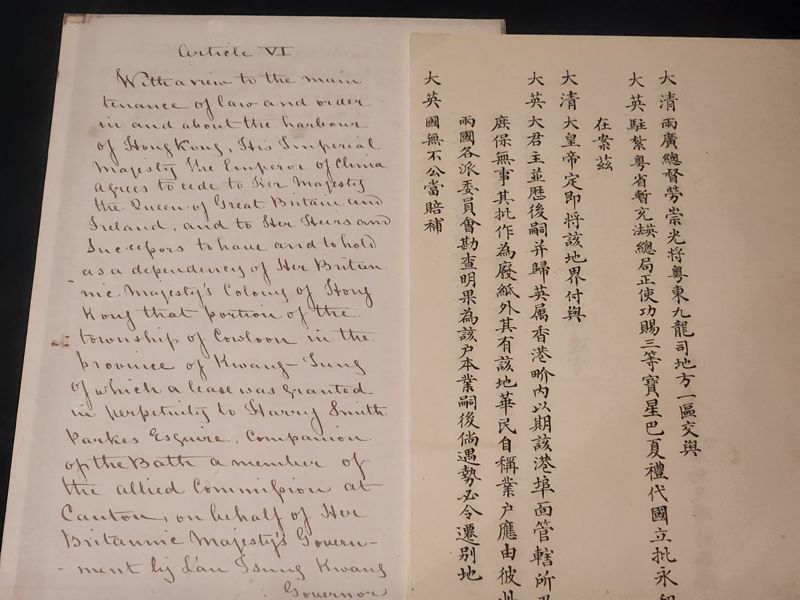 Article VI
With a view to the main
tenance of law and order
in and about the harbour
of Hong Kong, His Imperial
Majesty the Emperor of China
agrees to cede to Her Majesty
the Queen of Great Britain and
Ireland, and to Her Heirs and
Successors to have and to hold
as a dependency of Her Britan
nic Majesty's Colony of Hong
Kong that portion of the
township of Cowloon in the
province of Kwang-Tung
of which a lease was granted
in perpetuity to Harry Smith
Parkes Esquire, Companion
of the Bath a member of
the allied Commission at
Canton, on behalf of Her
Britannic Majesty's Govern-
-ment by Lau Tsung Kwang
Governor
大清兩廣總督勞崇光將粵東九龍司地方一區交與
大英駐紮粵省暫充英法總局正使功賜三等寶星巴夏禮代國立批永
在案茲
大清大皇帝定即將該地界付與
大英大君主並歷後嗣并歸英属香港畍內以期該港埠面管轄所
庶保無事其批作為廢紙外其有該地華民自稱業户應由彼此
兩國各派委員會勘查明果為該户本業嗣後倘遇勢必令遷別地
大英國無不公當賠補